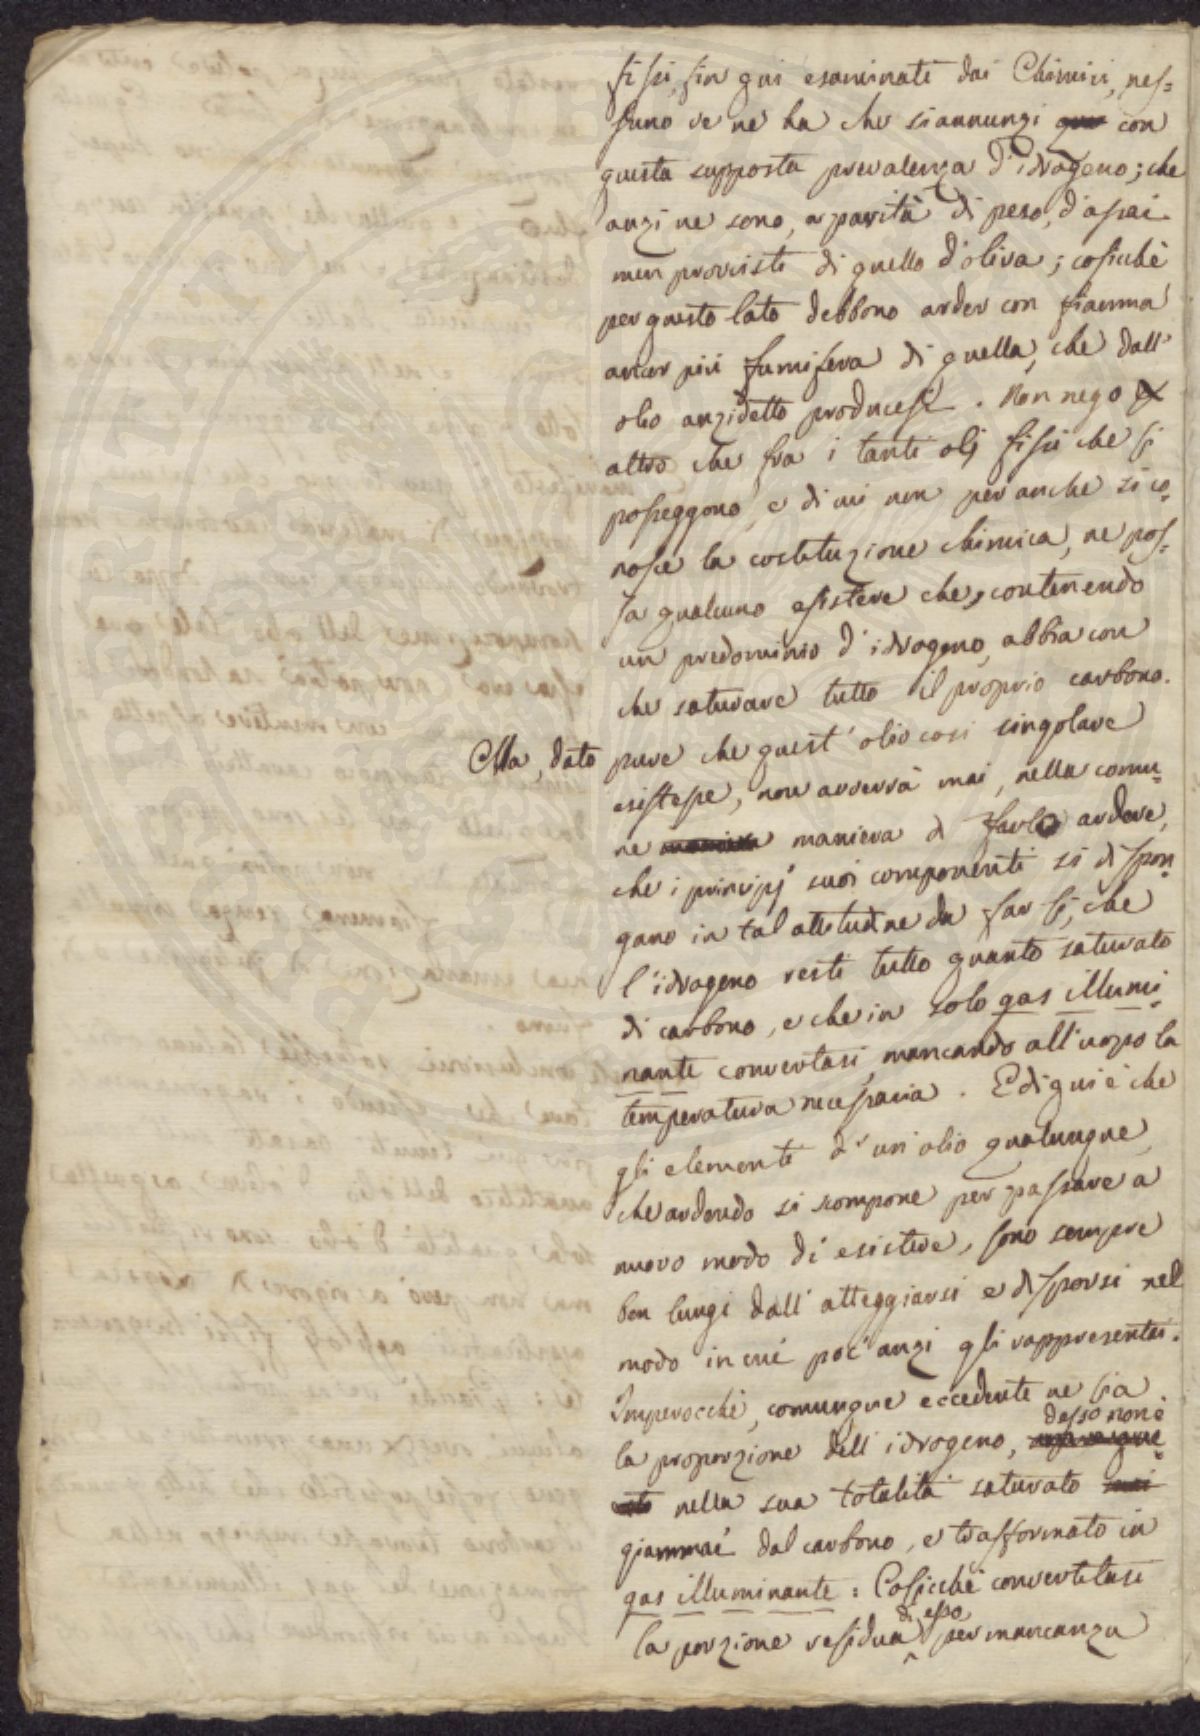 fissi, fin qui esaminati dai Chimici, nes=
suno ve ne ha che siannunzi con
questa supposta prevalenza d'idrogeno; che
anzi ne sono, a parità di peso, d'assai
men provvisti di quello d'oliva; cosicchè
per questo lato debbono arder con fiamma
ancor più fumifera di quella, che dall'
olio anzidetto producesi. Non nego
altro che fra i tanti olj fissi che si
posseggono, e di cui non per anche si co=
nosce la costituzione chimica, ne pos=
sa qualcuno esistere che, contenendo
un predominio d'idrogeno, abbia con
che saturare tutto il proprio carbono.
Ma, dato pure che quest'olio così singolare
esistesse, non avverrà mai, nella comu=
ne maniera di farlo ardere,
che i principj suoi componenti si dispon=
gano in tal attitudine da far sì, che
l'idrogeno resti tutto quanto saturato
di carbono, e che in solo gas illumi=
nante convertasi, mancando all'uopo la
temperatura necessaria. E di qui è che
gli elementi d'un olio qualunque,
che ardendo si scompone per passare a
nuovo modo di esistere, sono sempre
ben lungi dall'atteggiarsi e disporsi nel
modo in cui poc'anzi gli rappresentai.
Imperocchè, comunque eccedente ne sia
la proporzione dell'idrogeno, desso non è
nella sua totalità saturato
giammai dal carbono, e trasformato in
gas illuminante: Cosicchè convertitasi
la porzione residua di esso per mancanza